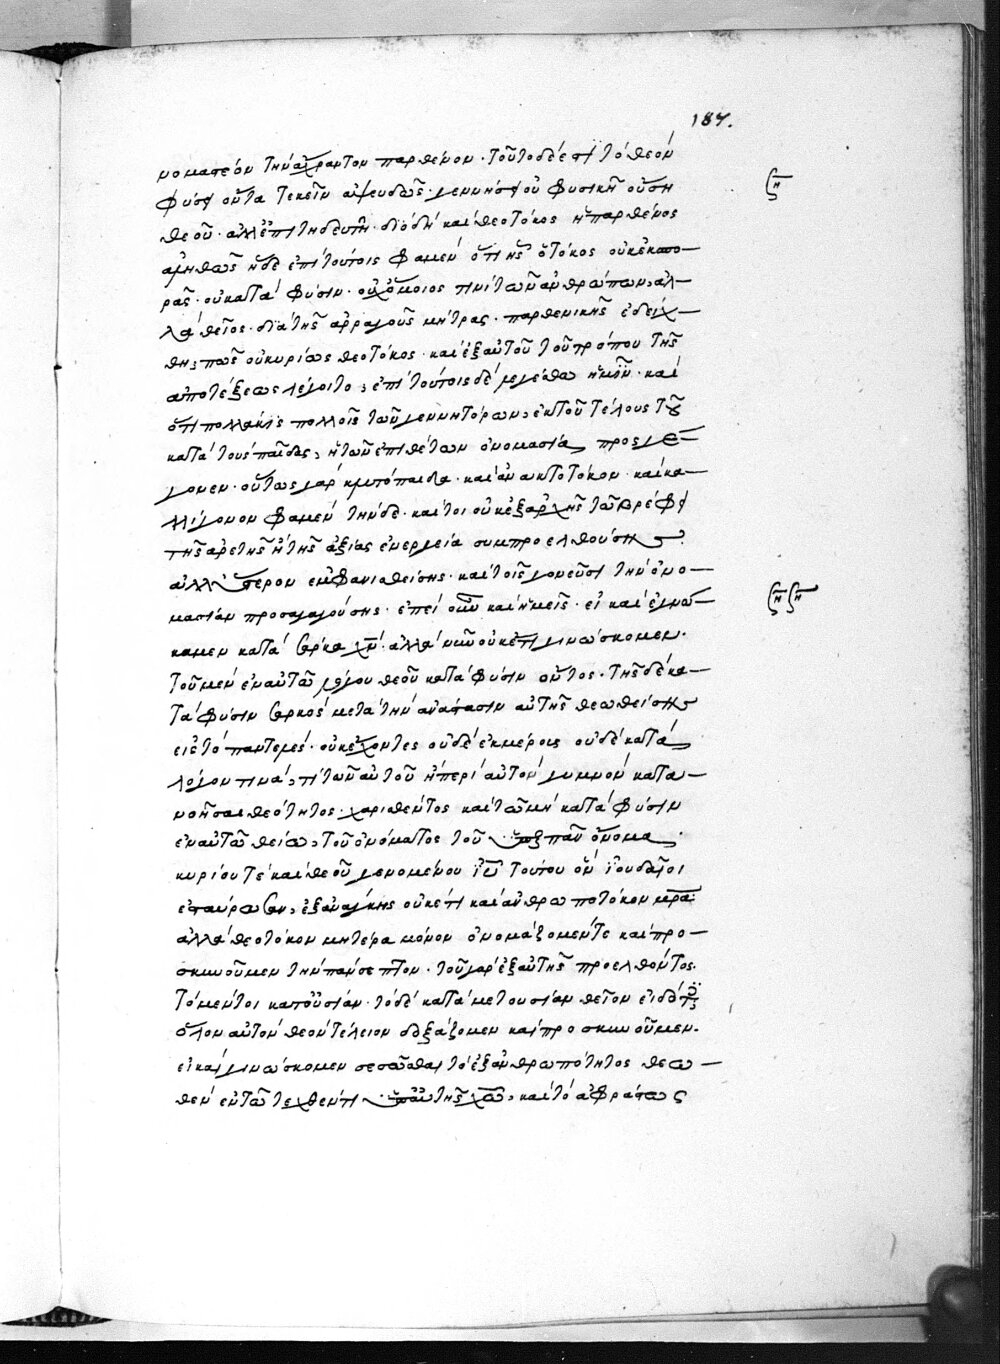 187.
νομαστέον τὴν ἄχραντον παρθένον· τοῦτο δέ ἐστι τὸ θεὸν
φύσει ὄντα τεκεῖν ἀψευδῶς· γεννήσει οὐ φυσικῇ οὔσῃ
θεοῦ· ἀλλ' ἐπιτηδευτῇ· διὸ δὴ καὶ θεοτόκος ἡ παρθένος
ἀληθῶς ἥδε ἐπὶ τούτοις φαμὲν ὅτι ἧς ὁ τόκος οὐκ ἐκ σπο–
ρᾶς· οὐ κατὰ φύσιν· οὐχ ὅμοιος τινὶ τῶν ἀνθρώπων, ἀλ–
λὰ θεῖος· διὰ τῆς ἀρραγοῦς μήτρας· παρθενικῆς ἐδείχ–
θη, πῶς οὐ κυρίως θεοτόκος· καὶ ἐξ αὐτοῦ τοῦ τρόπου τῆς
ἀποτέξεως λέγοιτο, ἐπὶ τούτοις δὲ μεγέθω ἡμῖν· καὶ
ὅτι πολλάκις πολλοῖς τῶν γεννητόρων, ἐκ τοῦ τέλους τοῦ
κατὰ τοὺς παῖδας, ἡ τῶν ἐπιθέτων ὀνομασία προσγέ–
γονεν· οὕτως γὰρ κλυτόπαιδα· καὶ ἀνακτοτόκον· καὶ κα–
λλίγονον φαμὲν τήνδε· καίτοι οὐκ ἐξ ἀρχῆς τῷ βρέφει
τῆς ἀρετῆς ἢ τῆς ἀξίας ἐνεργεία συμπροελθούσης
ἀλλ' ὕστερον ἐμφανισθείσης· καὶ τοῖς γονεῦσι τὴν ὀνο–
μασίαν προσαγαγούσης· ἐπεὶ οὖν καὶ ἡμεῖς· εἰ καὶ ἔγνω–
καμεν κατὰ σάρκα χν· ἀλλὰ νῦν οὐκέτι γινώσκομεν·
τοῦ μὲν ἐν αὐτῷ λόγου θεοῦ κατὰ φύσιν ὄντος· τῆς δὲ κα–
τὰ φύσιν σαρκὸς μετὰ τὴν ἀνάστασιν αὐτῆς θεωθείσης
εἰς τὸ παντελὲς· οὐκ ἔχοντες οὐδὲ ἐκ μέρους οὐδὲ κατὰ
λόγον τινὰ, τὶ τῶν αὐτοῦ ἢ περὶ αὐτὸν γυμνὸν κατα–
νοῆσαι θεότητος· χαρισθέντος καὶ τῷ μὴ κατὰ φύσιν
ἐν αὐτῷ θείῳ, τοῦ ὀνόματος τοῦ ὑπὲρ πᾶν ὄνομα·
κυρίου τὲ καὶ θεοῦ γενομένου ἰῦ τούτου ὃν ἰουδαῖοι
ἐσταύρωσαν, ἐξ ἀνάγκης οὐκέτι καὶ ἀνθρωποτόκον μρα
ἀλλὰ θεοτόκον μητέρα μόνον ὀνομάζομέν τε καὶ προ–
σκυνοῦμεν τὴν πάνσεπτον· τοῦ γὰρ ἐξ αὐτῆς προελθόντος·
τὸ μέν τοι κατ' οὐσίαν· τὸ δὲ κατὰ μετουσίαν θεῖον εἰδότες
ὅλον αὐτὸν θεὸν τέλειον δοξάζομεν καὶ προσκυνοῦμεν·
εἰ καὶ γινώσκομεν σεσῶσθαι τὸ ἐξ ἀνθρωπότητος θεω–
θὲν ἐν τῷ τεχθέντι χῶ, καὶ τὸ ἀφράστως